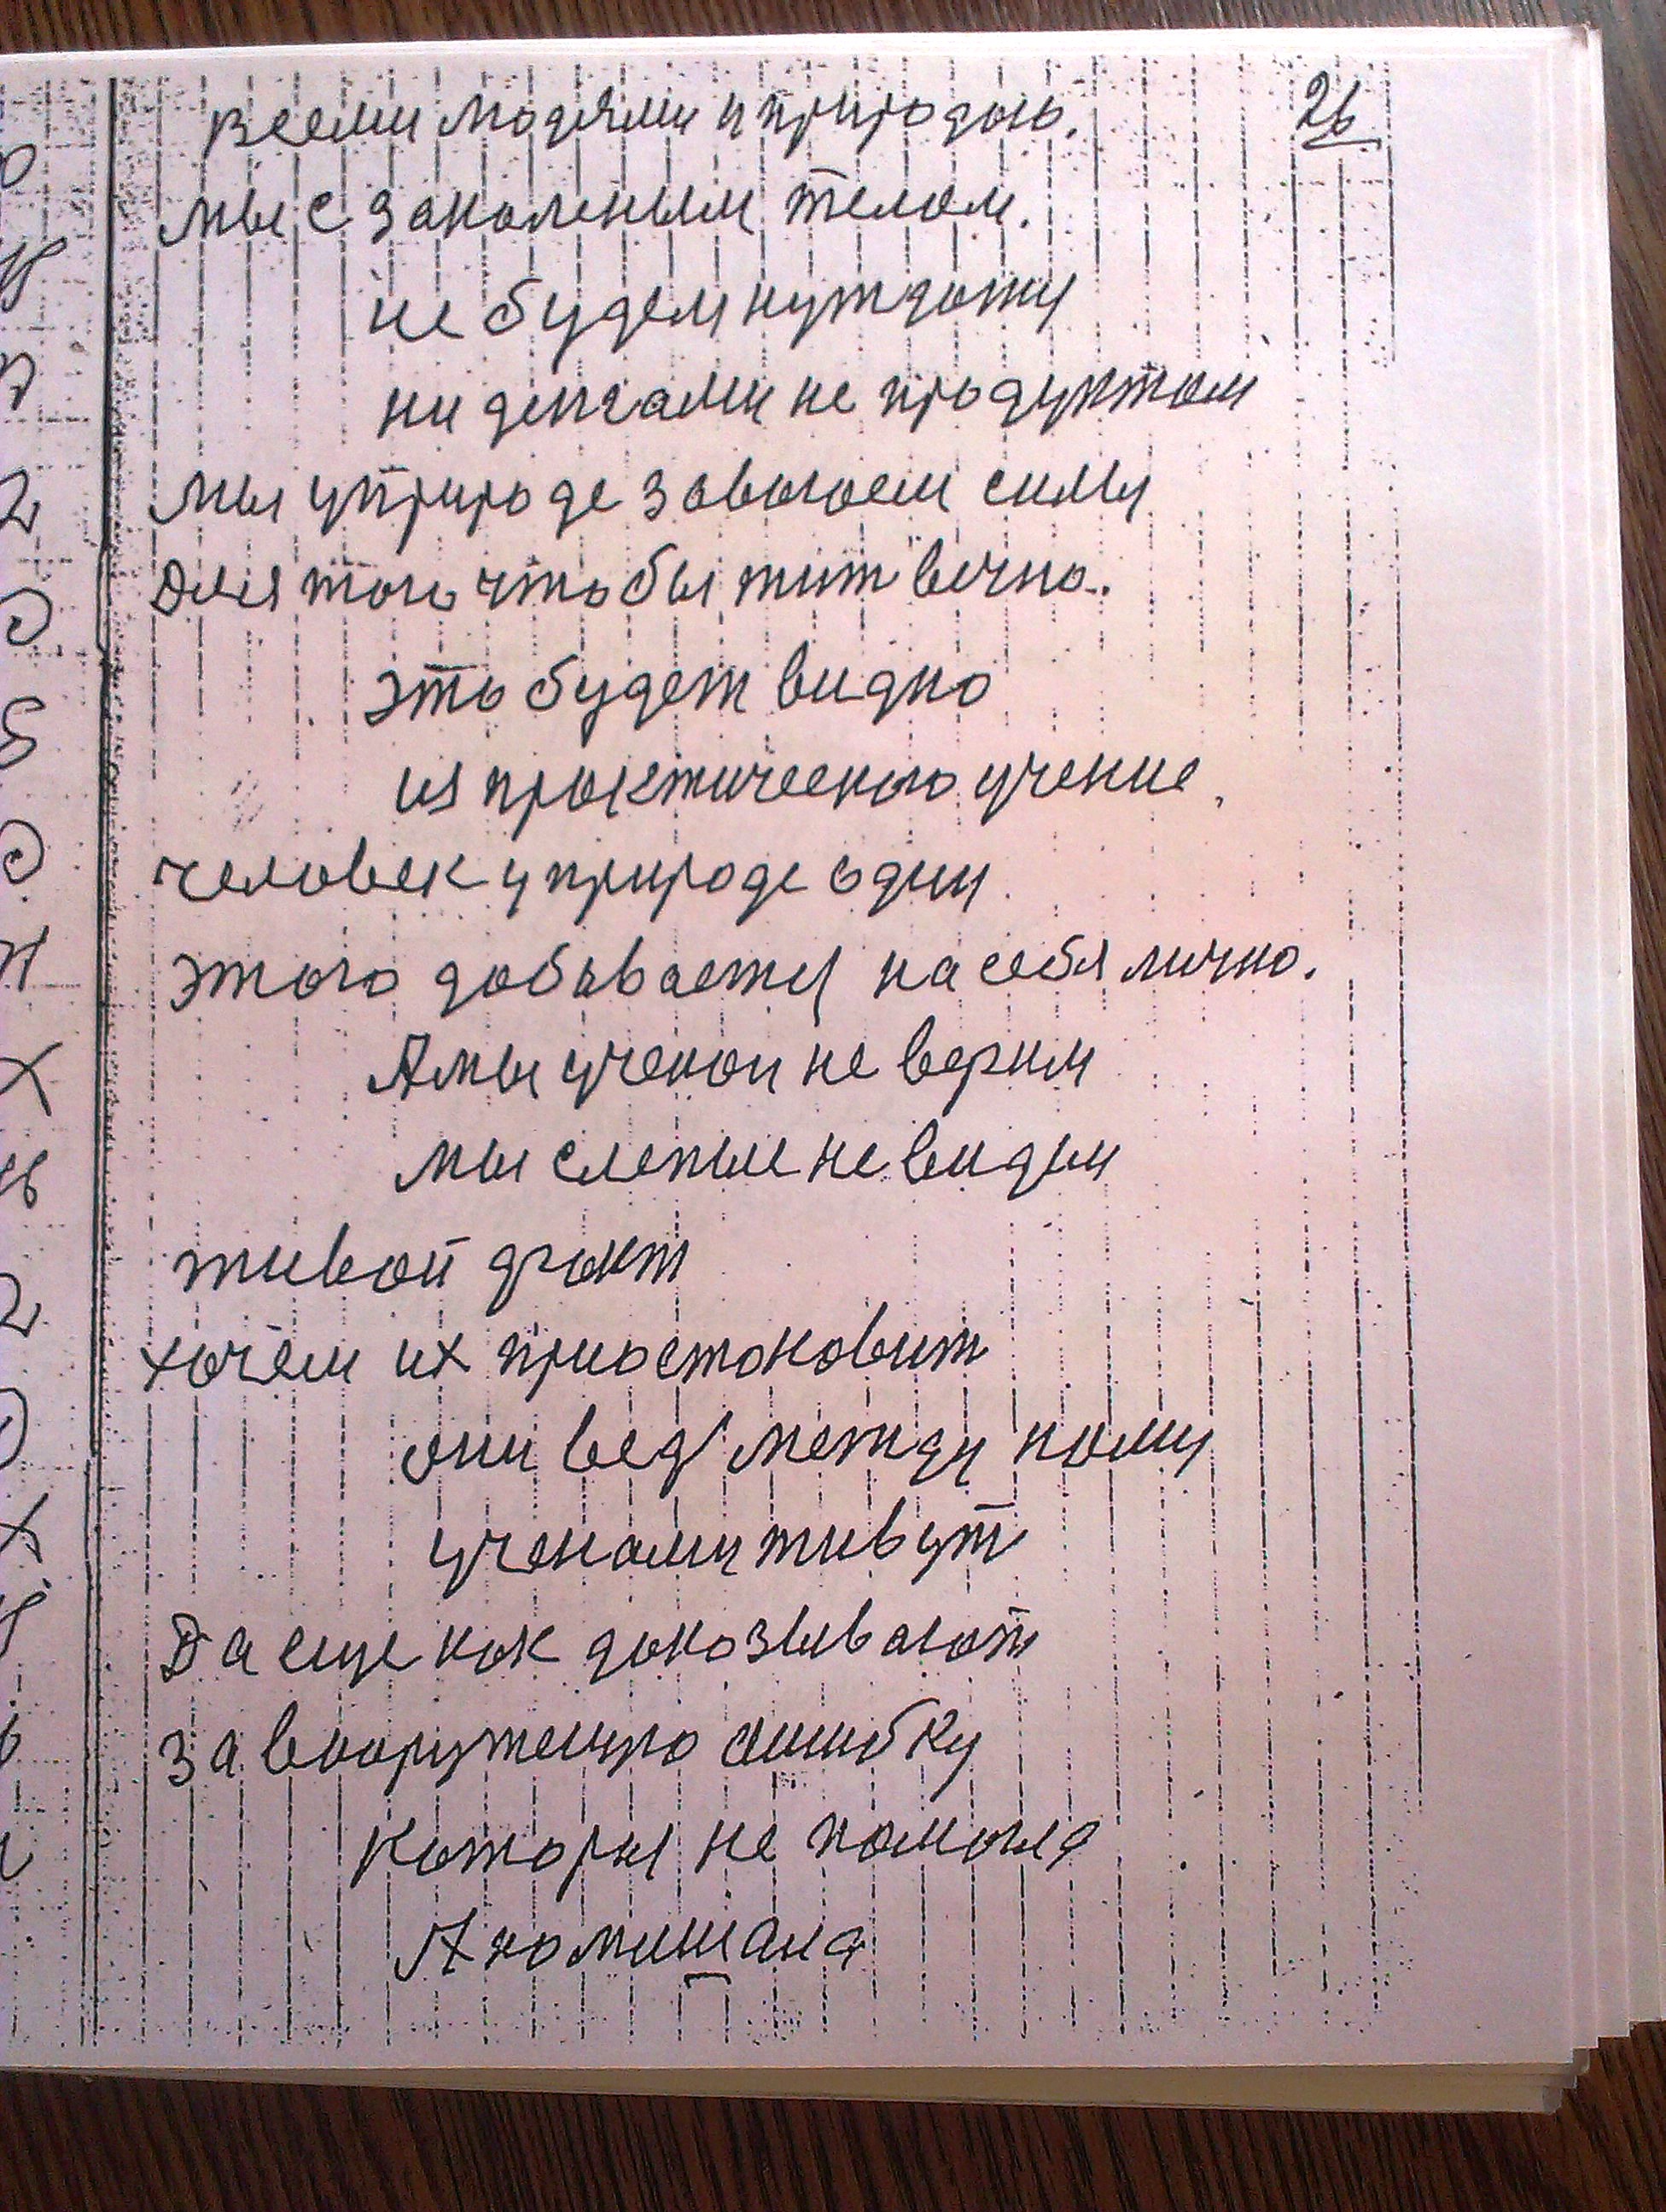 26
всеми людями и природою.
мы с заколеным телом.
не будем нуждати
ни денгами не продуктом
мы у природе завоюем силы
для того что бы жит вечно.
это будет видно
из практического учение.
человек у природе один
этого добивается на себя лично.
А мы ученаи не верим
мы слепые не видим
живой факт
хочем их приостановит
они вед между нами
ученами живут
Да еще как доказывают
за вооруженую ошибку
Которыя не помогла
А помишала